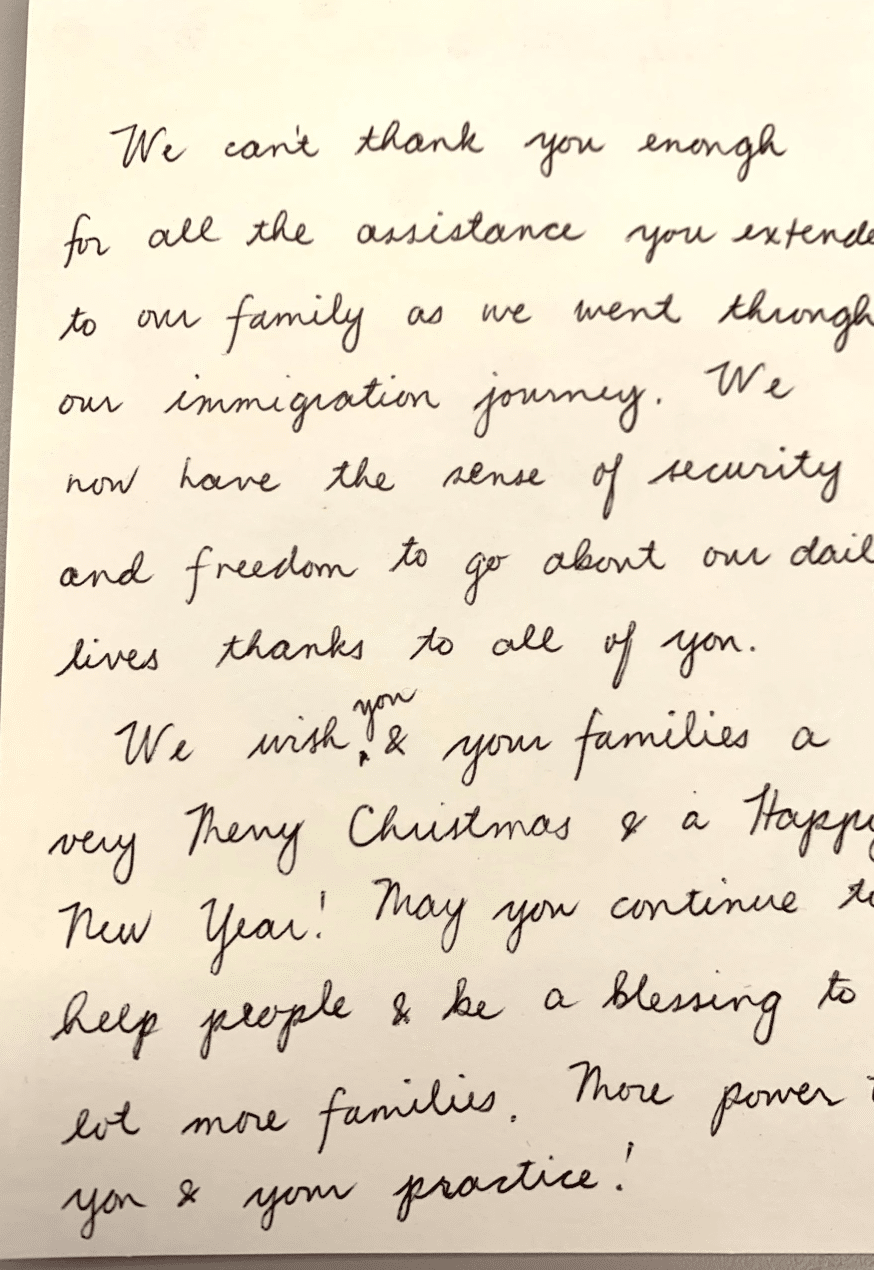 We can't thank you enough
for all the assistance you extende
to our family as we went through
our immigration journey. We
now have the sense of security
and freedom to go about our dail
lives thanks to all of you.
you
We wish & your families a
very Merry Christmas & a Happy
New Year! May you continue to
help people & be a blessing to
lot more families. More power t
you & your practice!